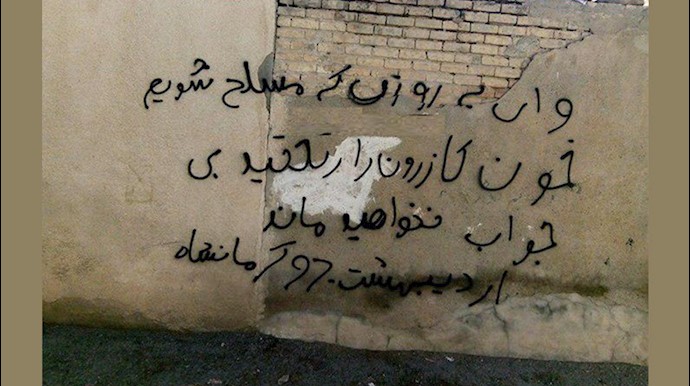 وای به روزی که مسلح شویم
خون کازرون را ریختید بی
جواب نخواهید ماند
اردیبهشت ۹۷ کرمانشاه